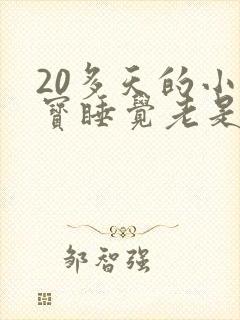 20多天的小
寶睡覺老是
邹智强